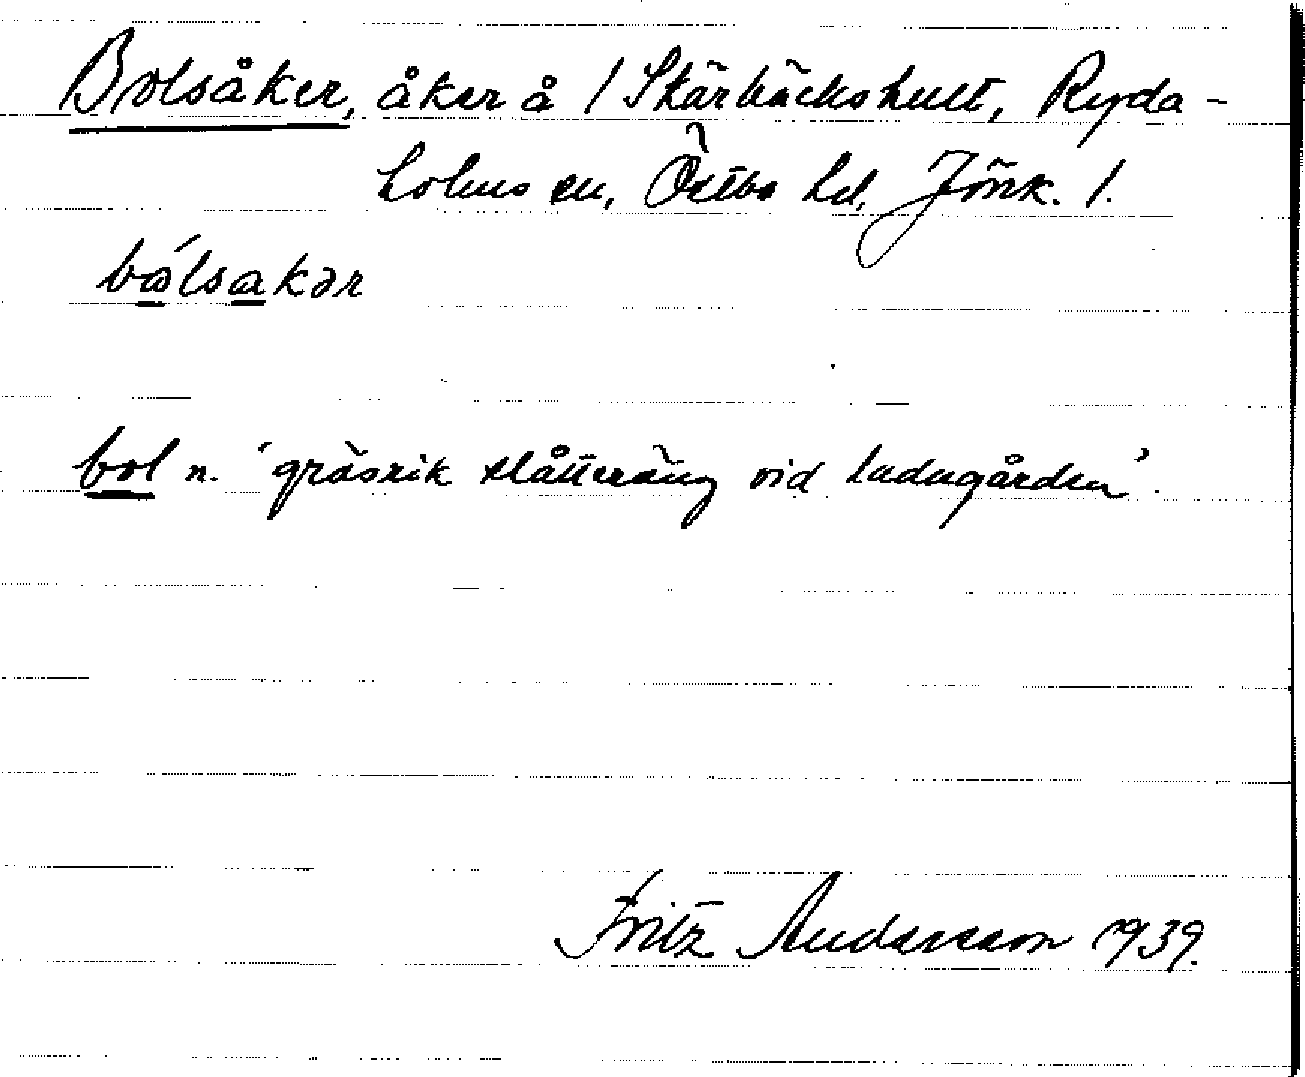 Bolsåker, åker å 1 Skärbäckshult, Ryda-
holms sn, Östbo hd, Jönk. l.
bólsakər
bol n. 'gräsrik slåtteräng vid ladugården'.
Fritz Andersson 1939.